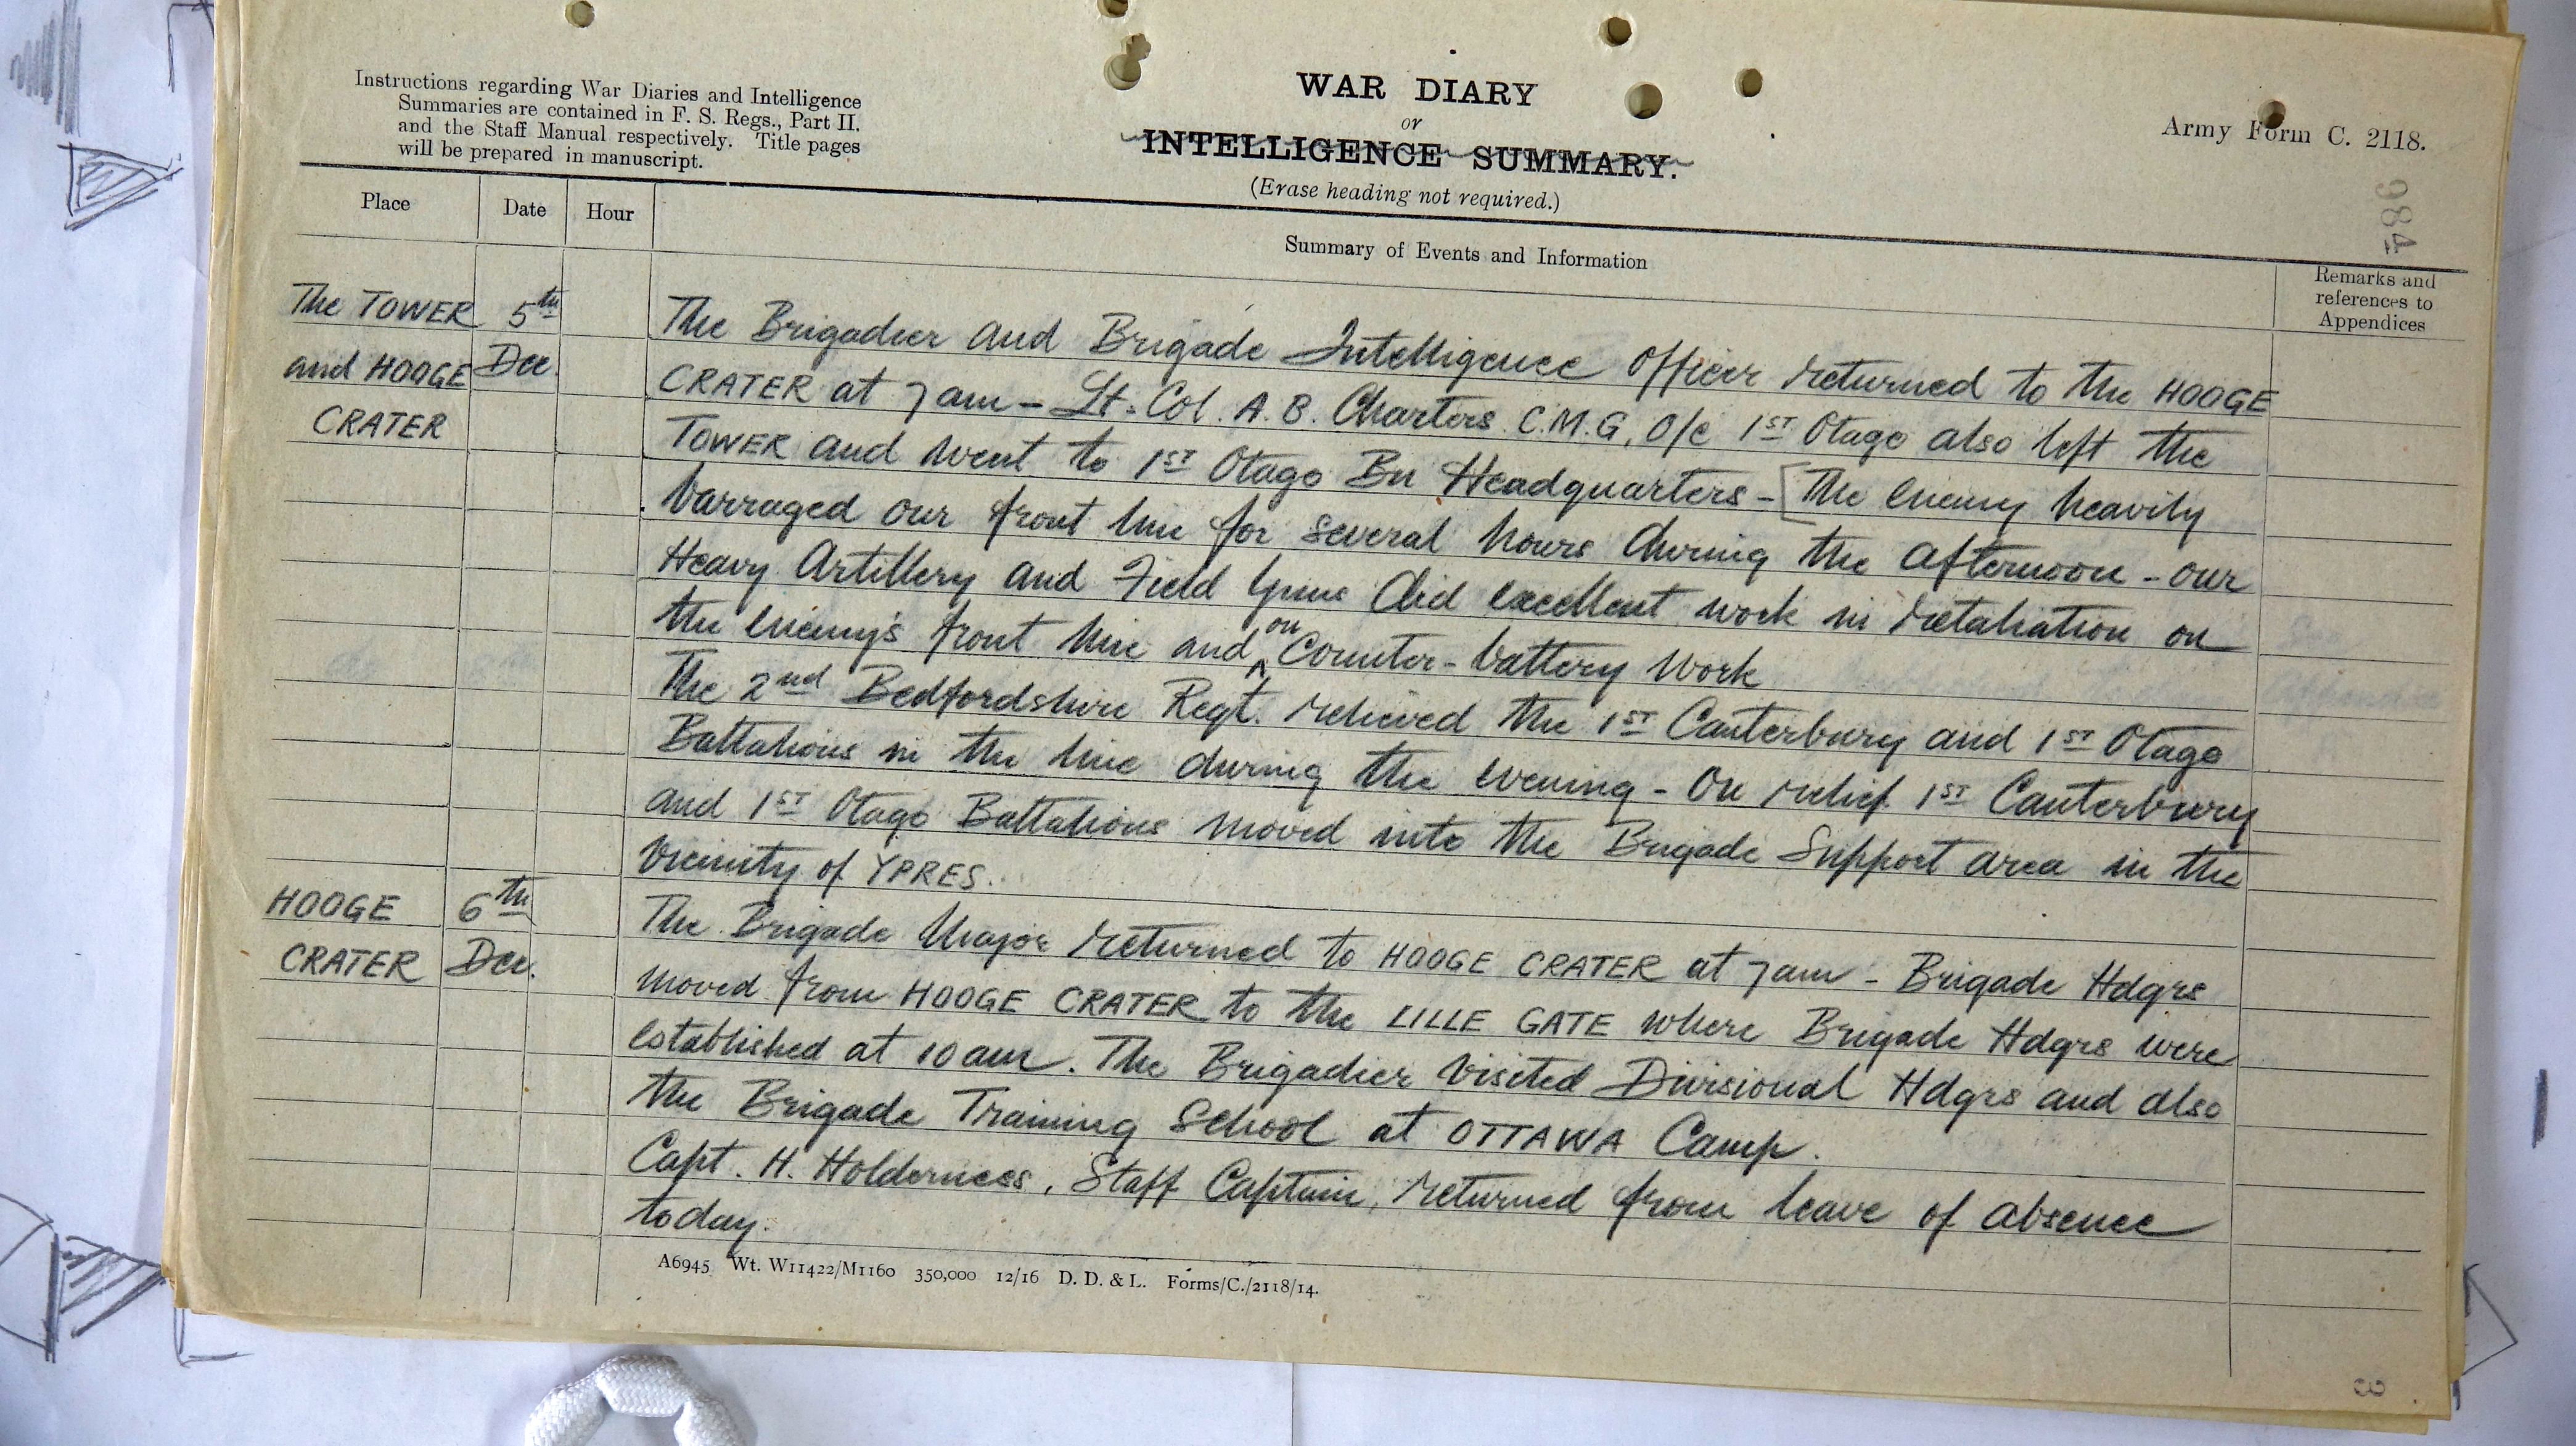 Instructions regarding War Diaries and Intelligence
Summaries are contained in F. S. Regs., Part II.
and the Staff Manual respectively. Title pages
will be prepared in manuscript.
WAR DIARY
or
INTELLIGENCE SUMMARY.
(Erase heading not required.)
Army Form C. 2118.
984
Place Date Hour Summary of Events and Information Remarks and
references to
Appendices
The TOWER 5th
and HOOGE Dec.
CRATER
The Brigadier and Brigade Intelligence Officer returned to the HOOGE
CRATER at 7am – Lt. Col. A. B. Charters C.M.G, O/c 1ST Otago also left the
TOWER and went to 1ST Otago Bn Headquarters – [The Enemy heavily
barraged our front line for several hours during the afternoon – our
Heavy Artillery and Field Guns did excellent work in retaliation on
the Enemy's front line and on Counter-battery work
The 2nd Bedfordshire Regt. relieved the 1ST Canterbury and 1ST Otago
Battalions in the line during the evening – On relief 1ST Canterbury
and 1ST Otago Battalions moved into the Brigade Support area in the
vicinity of YPRES.
HOOGE 6th
CRATER Dec.
The Brigade Major returned to HOOGE CRATER at 7am – Brigade Hdqrs
moved from HOOGE CRATER to the LILLE GATE where Brigade Hdqrs were
established at 10am. The Brigadier visited Divisional Hdqrs and also
the Brigade Training School at OTTAWA Camp.
Capt. H. Holderness, Staff Captain, returned from leave of absence
today.
A6945 Wt. W11422/M1160 350,000 12/16 D. D. & L. Forms/C./2118/14.
3